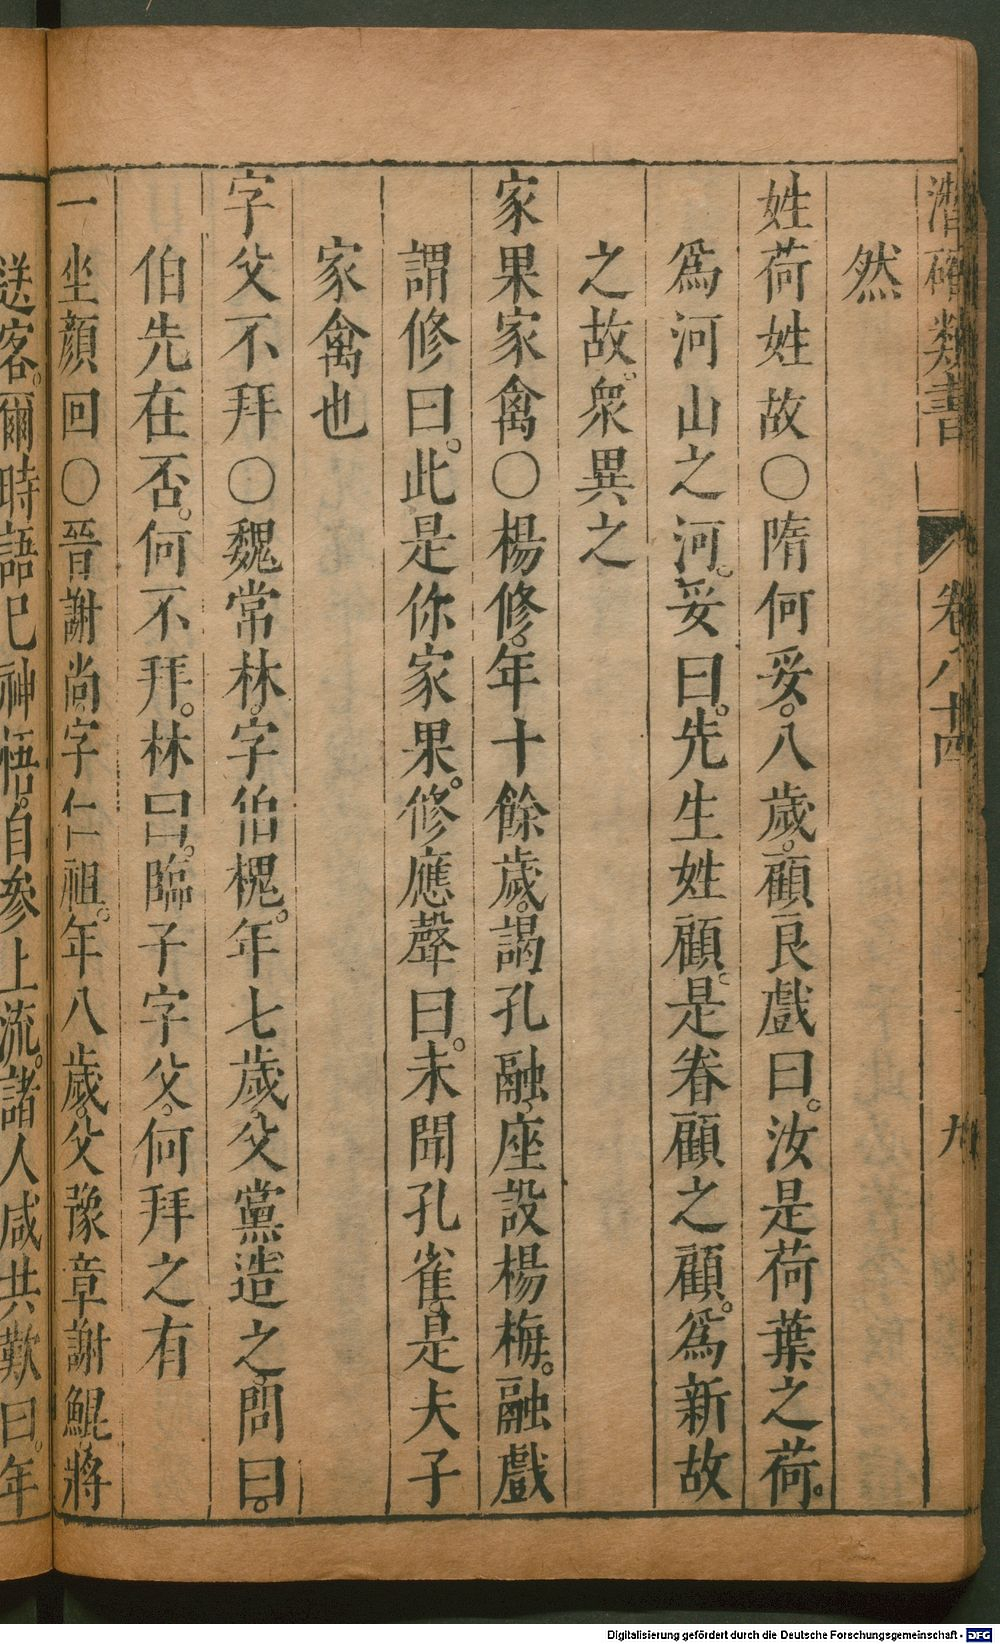 潛確類書 卷八十四 九
然
姓荷姓故○隋何妥。八歲。顧良戲曰。汝是荷葉之荷。
爲河山之河。妥曰。先生姓顧。是眷顧之顧。爲新故
之故。衆異之
家果家禽○楊修。年十餘歲。謁孔融。座設楊梅。融戲
謂修曰。此是你家果。修應聲曰。未聞孔雀。是夫子
家禽也
字父不拜○魏常林。字伯槐。年七歲。父黨造之。問曰。
伯先在否。何不拜。林曰。臨子字父。何拜之有
一坐顏回○晉謝尚。字仁祖。年八歲。父豫章謝鯤。將
送客。爾時語已神悟。自參上流。諸人咸共歎曰。年
Digitalisierung gefördert durch die Deutsche Forschungsgemeinschaft - DFG